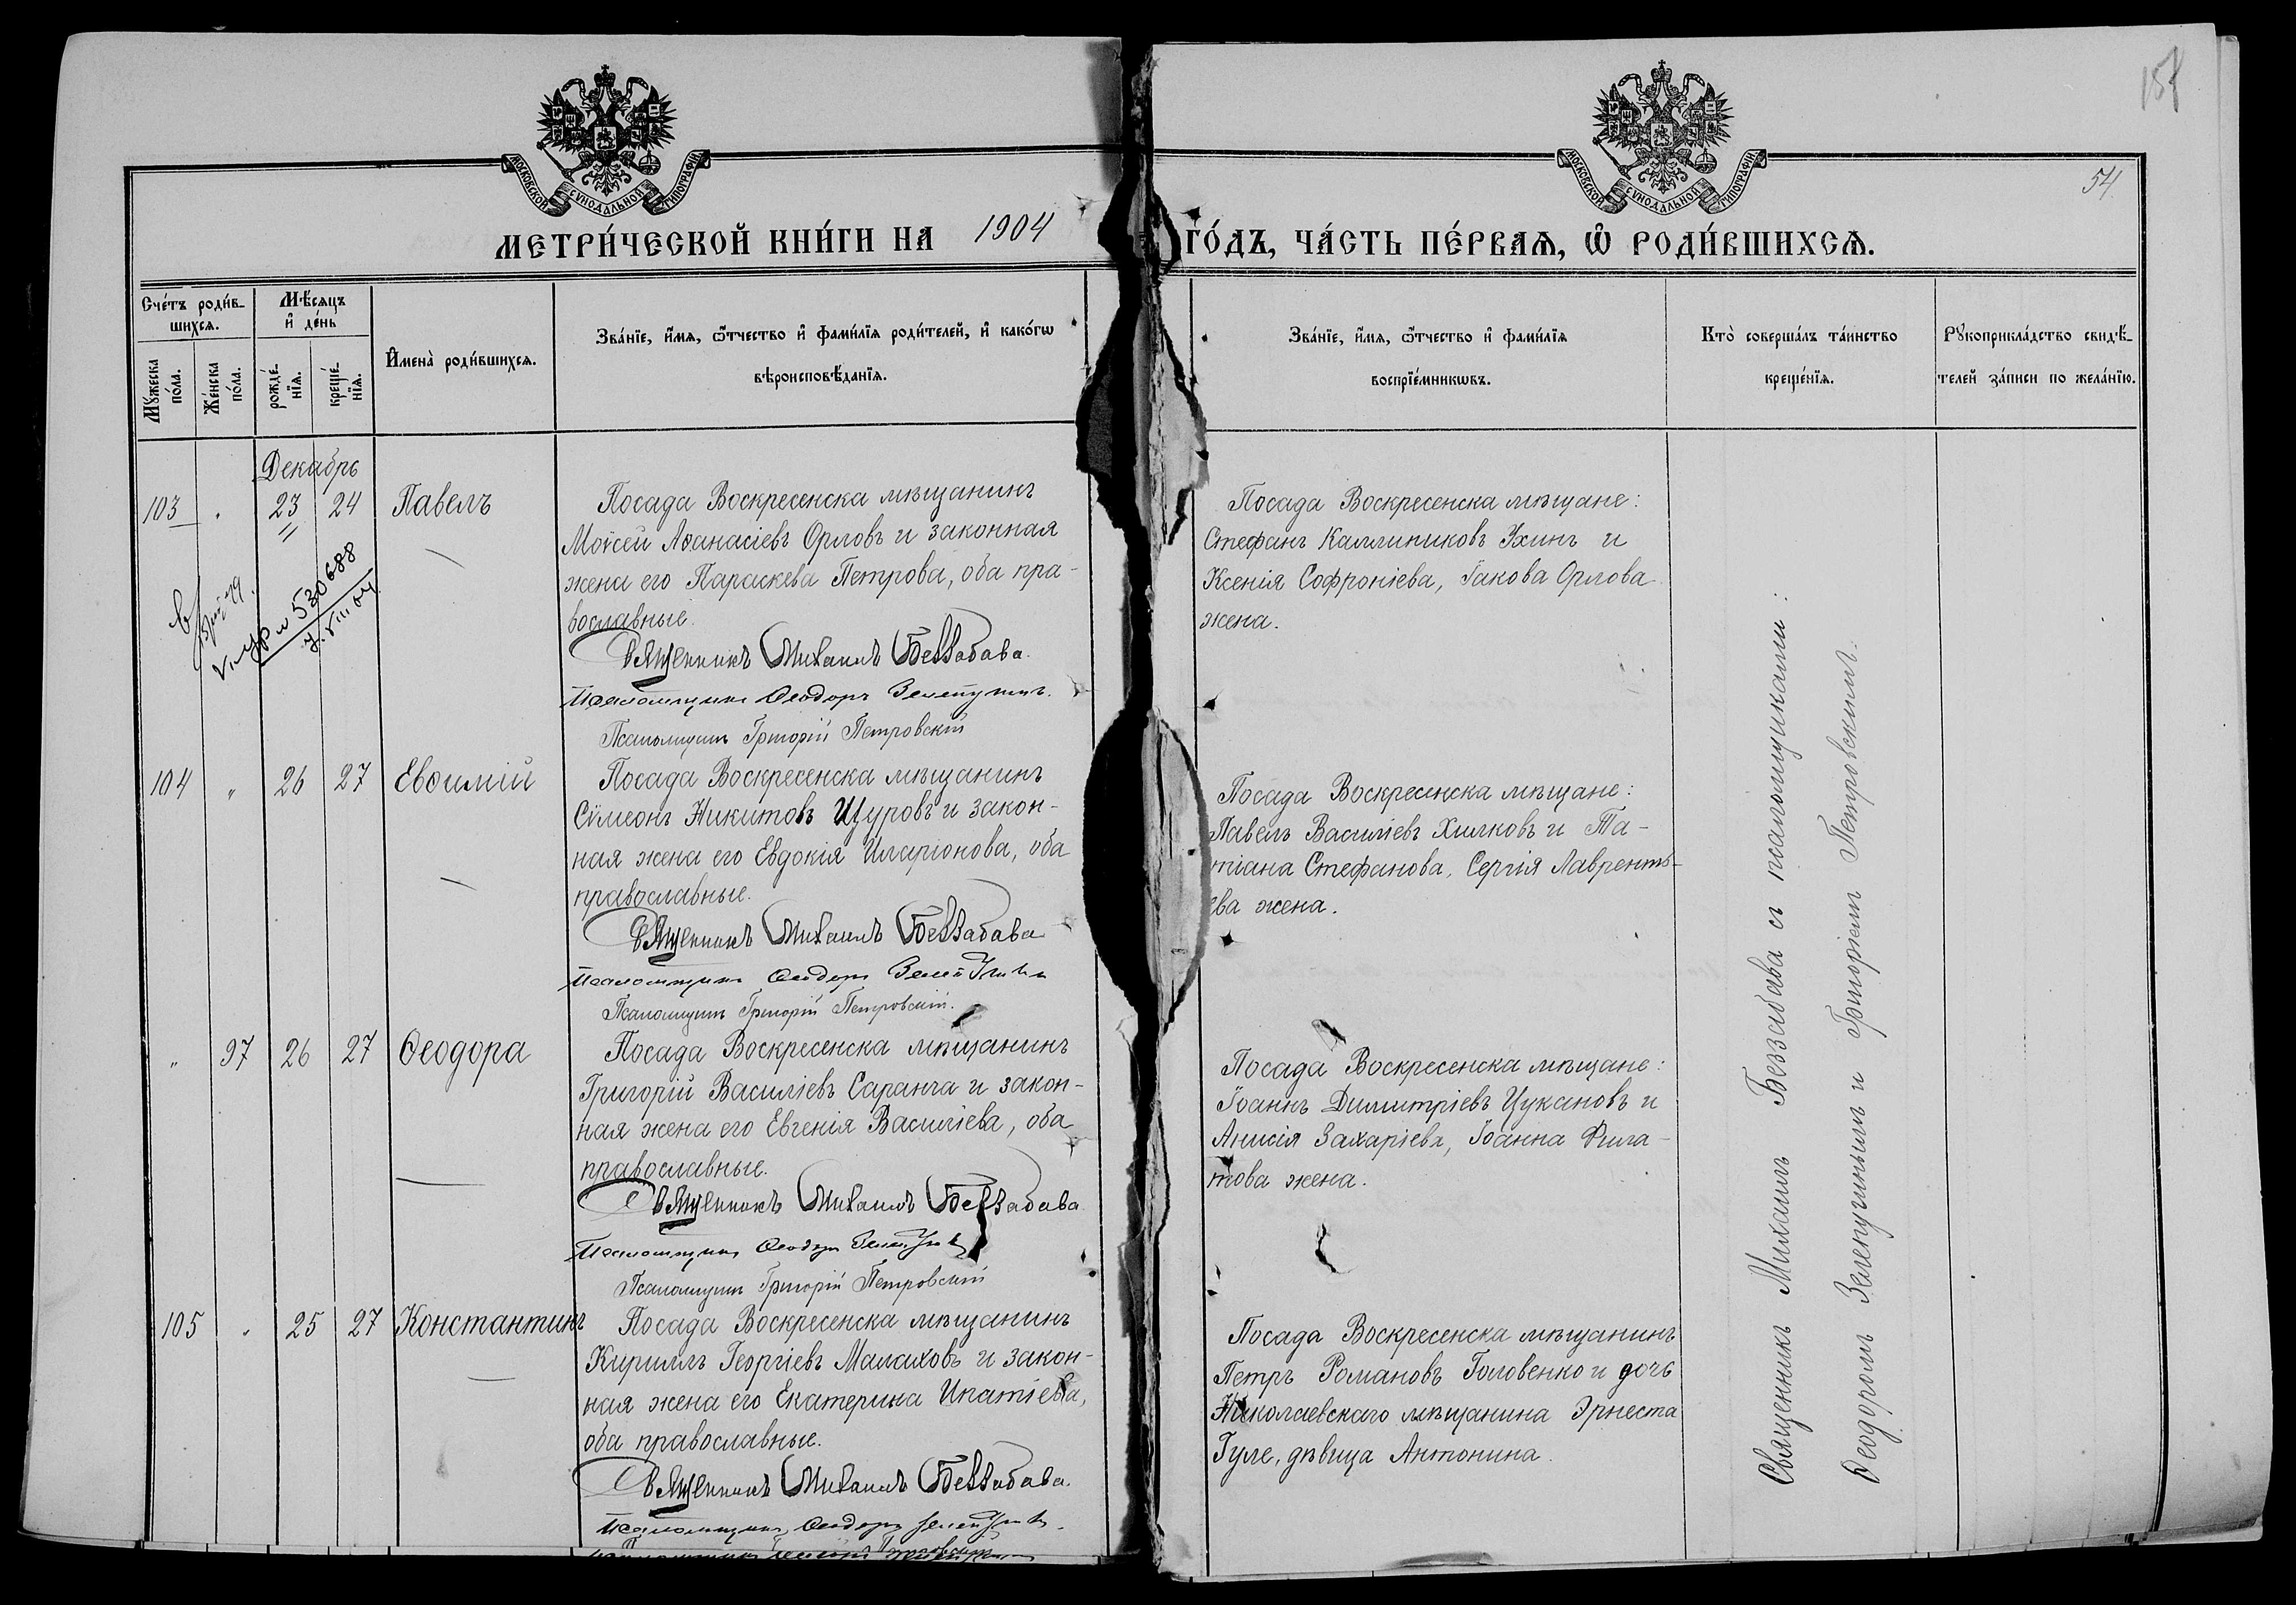 157
54
МОСКОВСКОЙ СѴНОДАЛЬНОЙ ТИПОГРАФІИ
МОСКОВСКОЙ СѴНОДАЛЬНОЙ ТИПОГРАФІИ
МЕТРИ́ЧЕСКОЙ КНИ́ГИ НА 1904 ГО́ДЪ, ЧА́СТЬ ПЕ́РВАѦ, Ѽ РОДИ́ВШИХСѦ.
Сче́тъ роди́в-
шихсѧ.
Мꙋ́жеска
по́ла.
Же́нска
по́ла.
Мѣ́сѧцъ
и҆ де́нь
рожде́-
нїѧ.
креще́-
нїѧ.
И҆мена̀ роди́вшихсѧ.
Зва́нїе, и҆́мѧ, ѻ҆́тчество и҆ фами́лїѧ роди́телей, и҆ како́гѡ
вѣроисповѣ́данїѧ.
Зва́нїе, и҆́мѧ, ѻ҆́тчество и҆ фами́лїѧ
воспрїе́мникѡвъ.
Кто̀ соверша́лъ та́инство
креще́нїѧ.
Рꙋкоприкла́дство свидѣ́-
телей за́писи по жела́нїю.
Декабрь
103 " 23 24 Павелъ
Посада Воскресенска мѣщанинъ
Моѵсей Аѳанасіевъ Орловъ и законная
жена его Параскева Петрова, оба пра-
вославные.
Священникъ Михаилъ Беззабава.
Псаломщикъ Ѳеодоръ Зелепугинъ.
Псаломщикъ Григорій Петровскій
Посада Воскресенска мѣщане:
Стефанъ Каллиниковъ Ухинъ и
Ксенія Софроніева, Іакова Орлова
жена.
530688
104 " 26 27 Евѳимій
Посада Воскресенска мѣщанинъ
Сѵмеонъ Никитовъ Щуровъ и закон-
ная жена его Евдокія Иларіонова, оба
православные.
Священникъ Михаилъ Беззабава
Псаломщикъ Ѳеодоръ Зелепугинъ
Псаломщикъ Григорій Петровскій.
Посада Воскресенска мѣщане:
Павелъ Василіевъ Хилковъ и Та-
тіана Стефанова, Сергія Лаврентьъ-
ева жена.
" 97 26 27 Ѳеодора
Посада Воскресенска мѣщанинъ
Григорій Василіевъ Саранча и закон-
ная жена его Евгенія Василіева, оба
православные.
Священникъ Михаилъ Беззабава
Псаломщикъ Ѳеодоръ Зелепугинъ
Псаломщикъ Григорій Петровскій
Посада Воскресенска мѣщане:
Іоаннъ Димитріевъ Цукановъ и
Анисія Захаріева, Іоанна Фила-
това жена.
105 " 25 27 Константинъ
Посада Воскресенска мѣщанинъ
Кириллъ Георгіевъ Малаховъ и закон-
ная жена его Екатерина Ипатіева,
оба православные.
Священникъ Михаилъ Беззабава.
Псаломщикъ Ѳеодоръ Зелепугинъ.
Псаломщикъ Григорій Петровскій
Посада Воскресенска мѣщанинъ
Петръ Романовъ Головенко и дочь
Николаевскаго мѣщанина Эрнеста
Гуле, дѣвица Антонина.
Священникъ Михаилъ Беззабава съ псаломщиками:
Ѳеодоромъ Зелепугинымъ и Григоріемъ Петровскимъ.